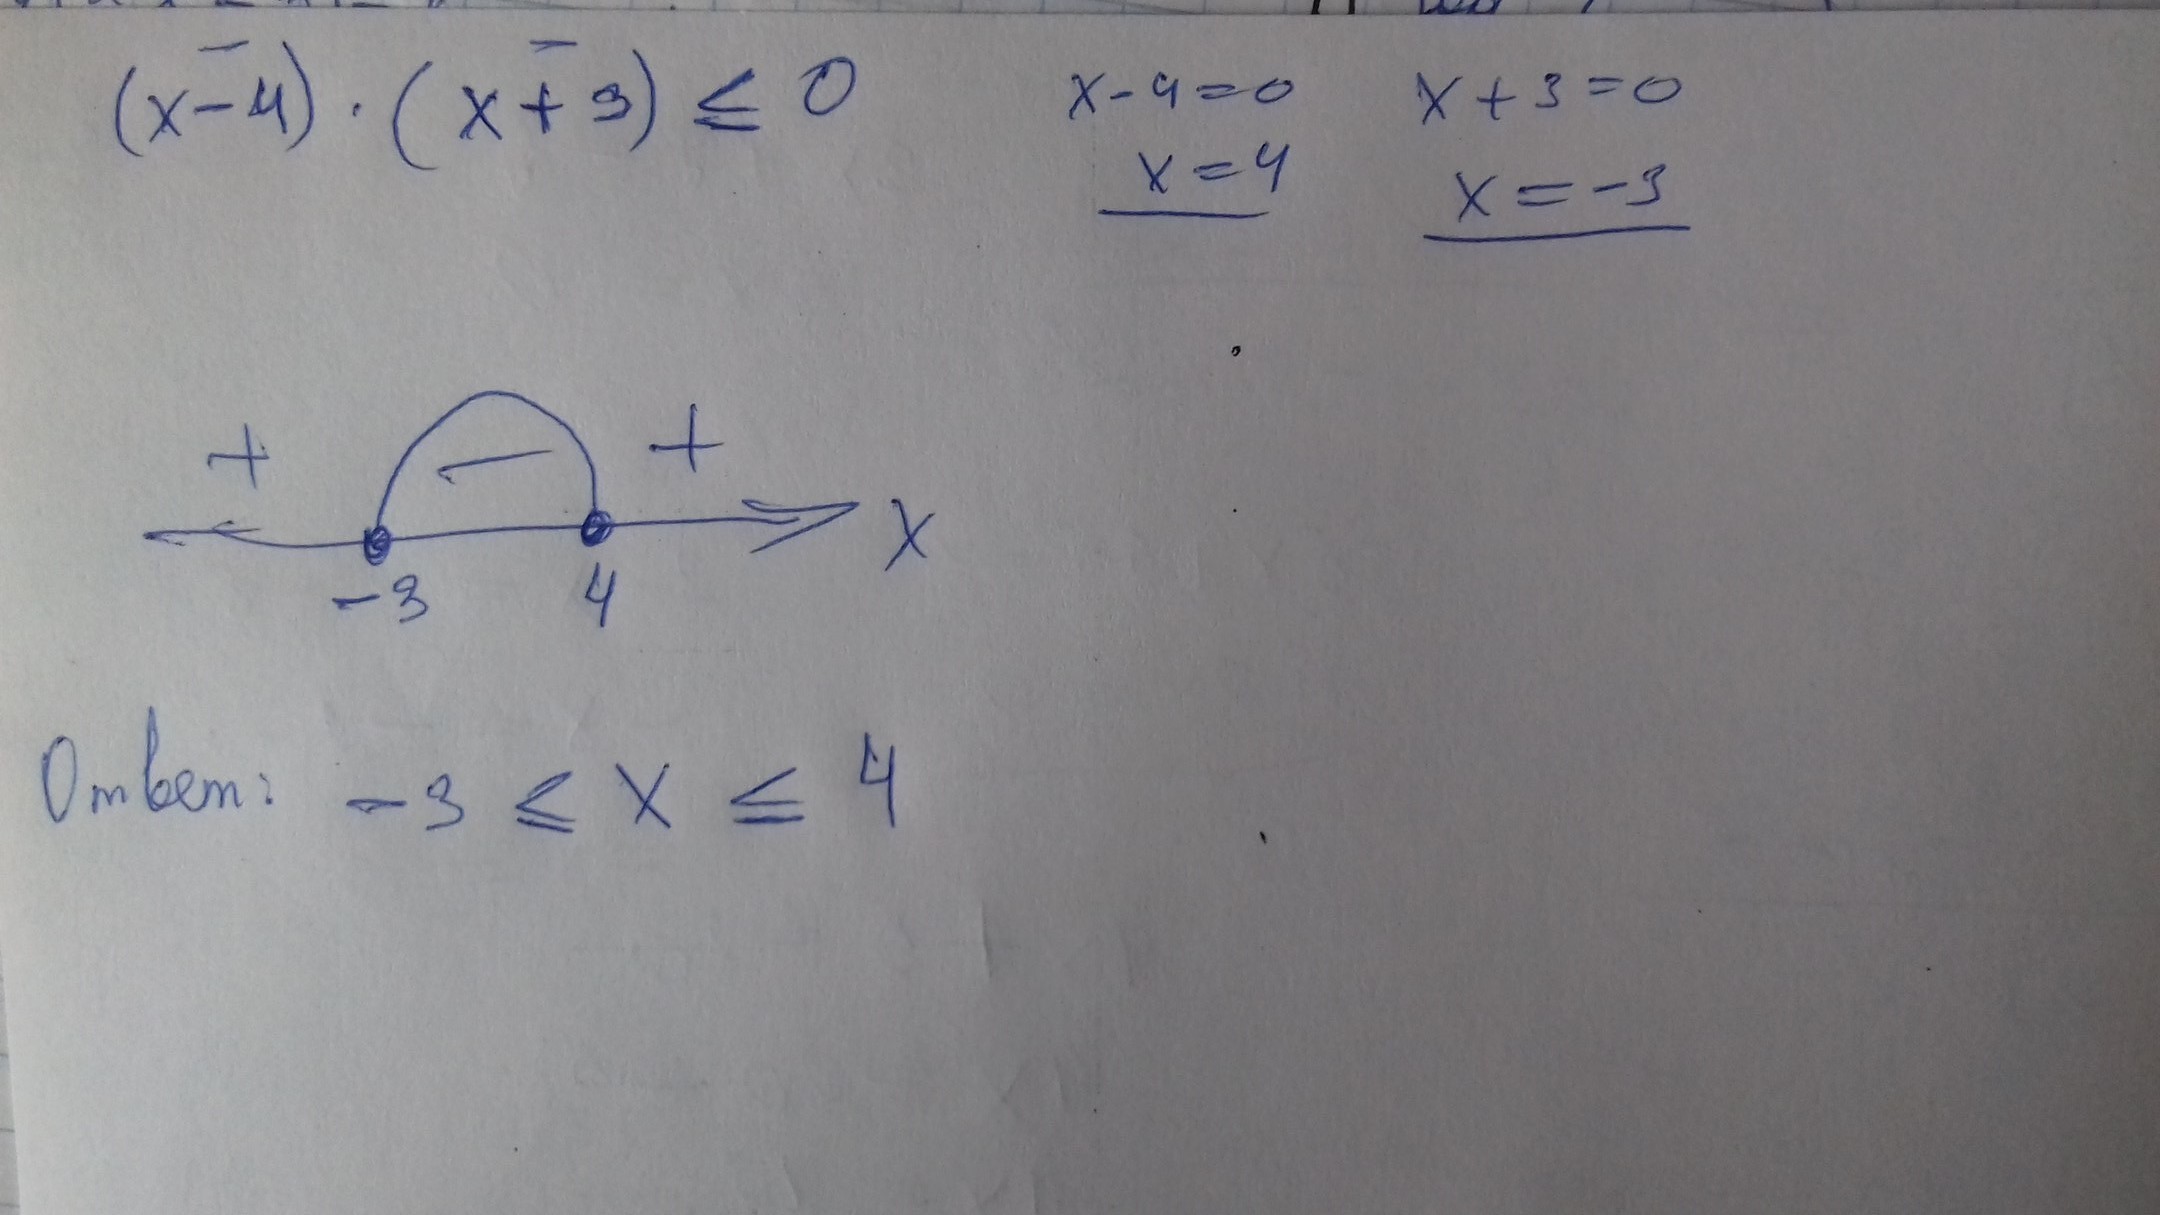 (x-4)·(x+3)≤0
x-4=0
x=4
x+3=0
x=-3
+ - +
-3 4 x
Ответ: -3 ≤ x ≤ 4